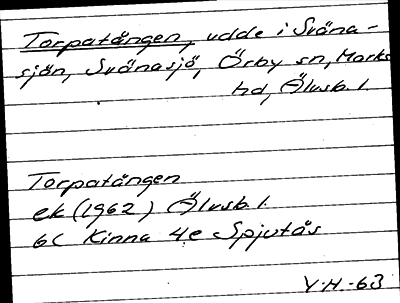 Torpatången, udde i Svåna-
sjön, Svånasjö, Örby sn, Marks
hd, Älvsb. l.
Torpatången
ek (1962) Älvsb. l.
6C Kinna 4e Spjutås
V.H.-63